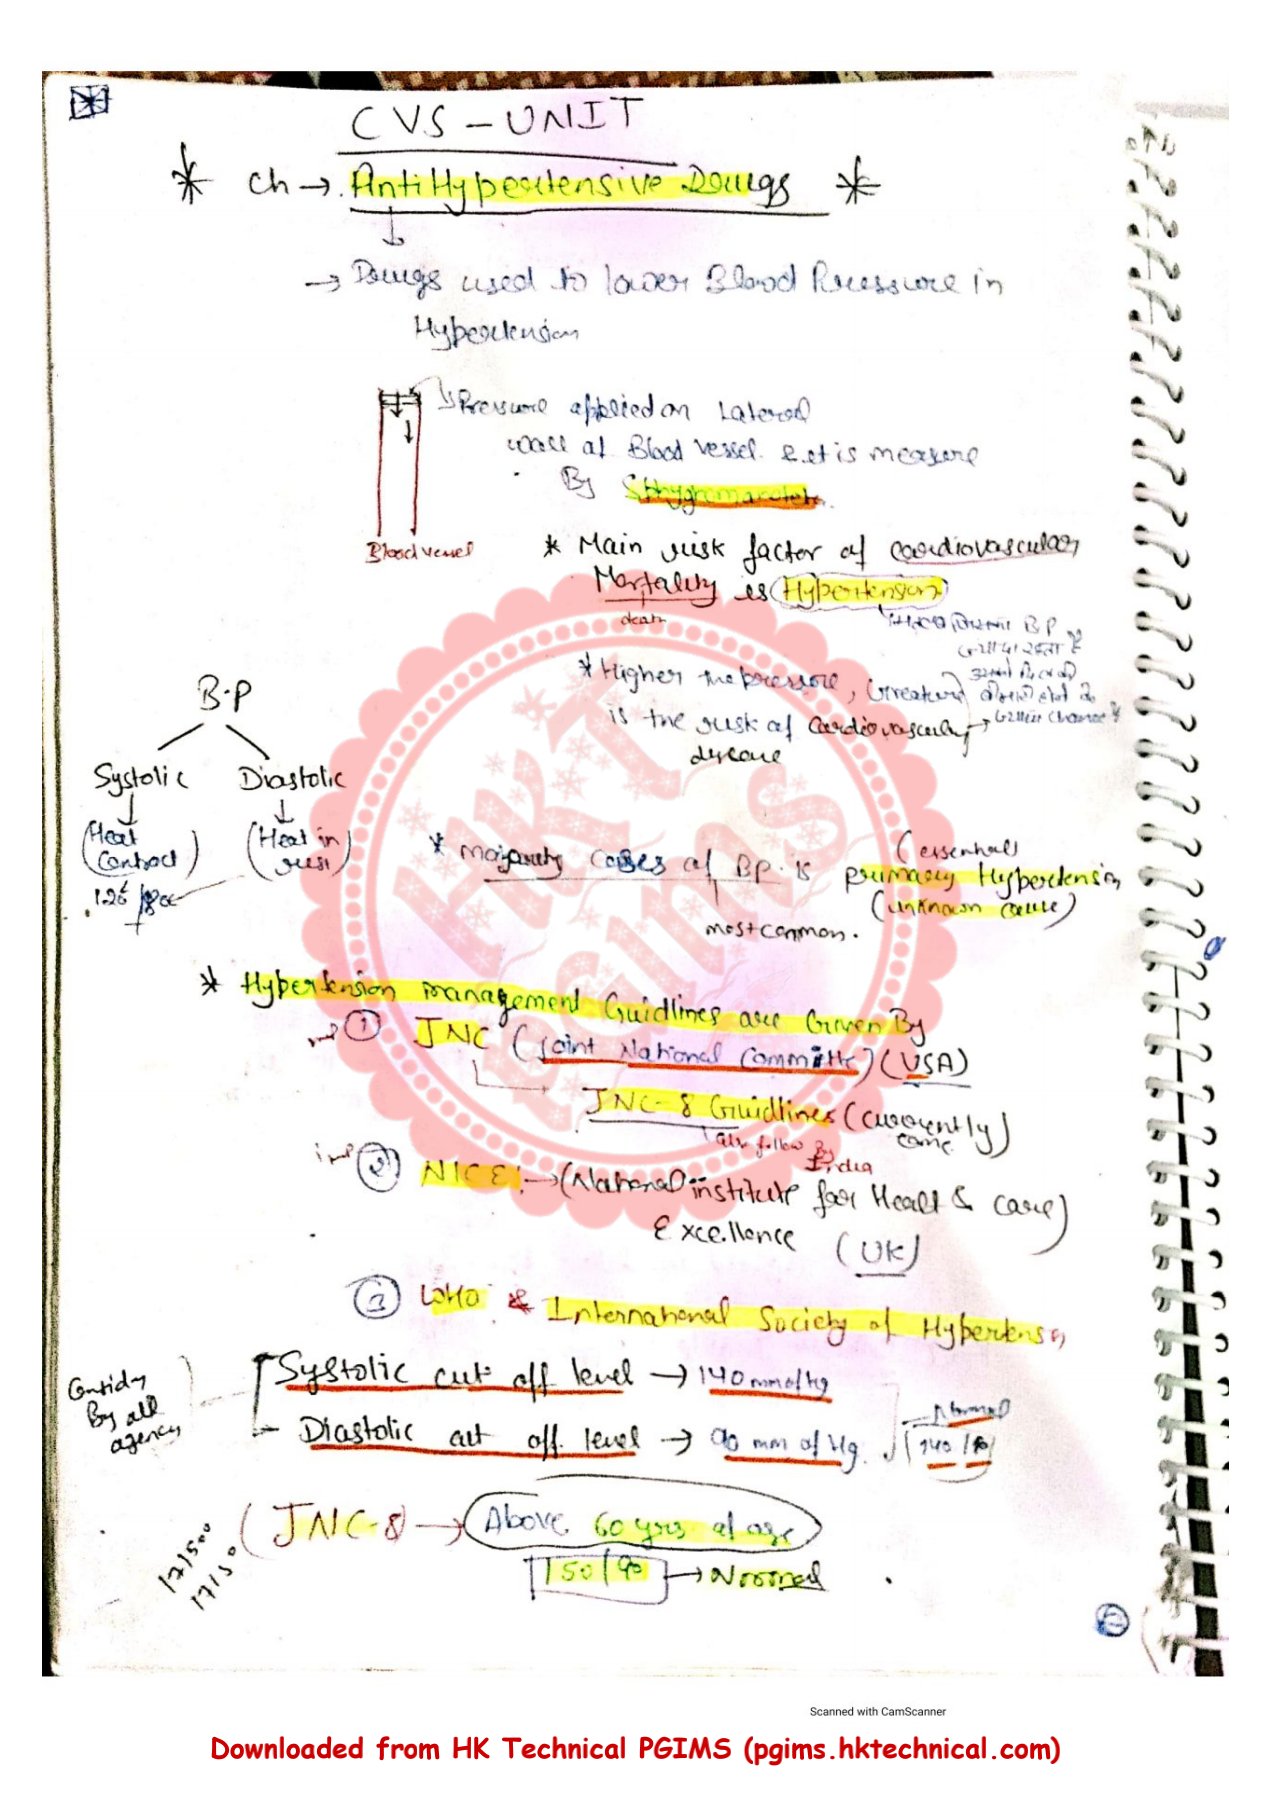 CVS - UNIT
* Ch → AntiHypertensive Drugs *
→ Drugs used to lower Blood Pressure in
Hypertension
↳ Pressure applied on Lateral
wall of Blood vessel & it is measure
By
Blood vessel
* Main risk factor of cardiovascular
Mortality is Hypertension
death
BP
* Higher the pressure, Greater
is the risk of cardiovascular → chance
disease
B.P
Systolic Diastolic
(Heat Contract) (Heat in rest)
* Majority cases of BP is primary Hypertension
(essential)
(unknown cause)
most common.
* Hypertension management Guidlines are Given By
imp ① JNC (Joint National Committe) (USA)
JNC-8 Guidlines (currently come)
also follow By India
imp ② NICE: → (National institute for Healt & care)
Excellence (UK)
③ WHO & International Society of Hypertension
Systolic cut off level → 140 mm of Hg
Diastolic cut off level → 90 mm of Hg.
By all
agency
Normal
140/90
(JNC-8) → Above 60 yrs of age
150/90 → Normal
171500
17150
HKT
PGIMS
Scanned with CamScanner
Downloaded from HK Technical PGIMS (pgims.hktechnical.com)